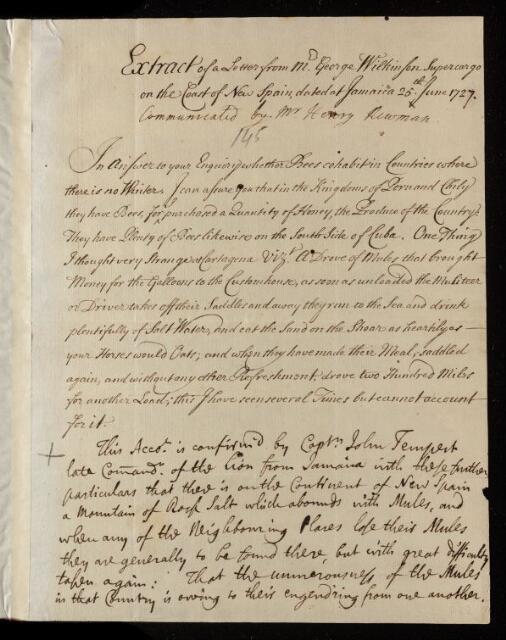 Extract of a Letter from Mr. George Wilkinson Supercargo
on the Coast of New Spain, dated at Jamaica 25th June 1727.
Communicated by Mr Henry Newman
145
In Answer to your Enquiry whether Bees cohabit in Countries where
there is no Winter, I can assure you that in the Kingdoms of Peru and Chily
they have Bees, for I purchased a Quantity of Honey, the Produce of the Country.
They have Plenty of Bees likewise on the South Side of Cuba. One Thing
I thought very Strange at Cartagena Vizt. A Drove of Mules that brought
Money for the Galleons to the Customhouse, as soon as unloaded the Muliteer
or Driver takes off their Saddles and away they run to the Sea and drink
plentifully of Salt Water, and eat the Sand on the Shoar as heartily as
your Horses would Oats; and when they have made their Meal, saddled
again, and without any other Refreshment, drove two Hundred Miles
for another Load; this I have seen several Times but cannot account
for it.
+ This Acct. is confirm'd by Captn John Tempest
late Comandr. of the Lion from Jamaica with these further
particulars that there is on the Continent of New Spain
a Mountain of Rock Salt which abounds with Mules, and
when any of the Neighbouring Places lose their Mules
they are generally to be found there, but with great difficulty
taken again: That the numerousness of the Mules
in that Country is owing to their engendring from one another.